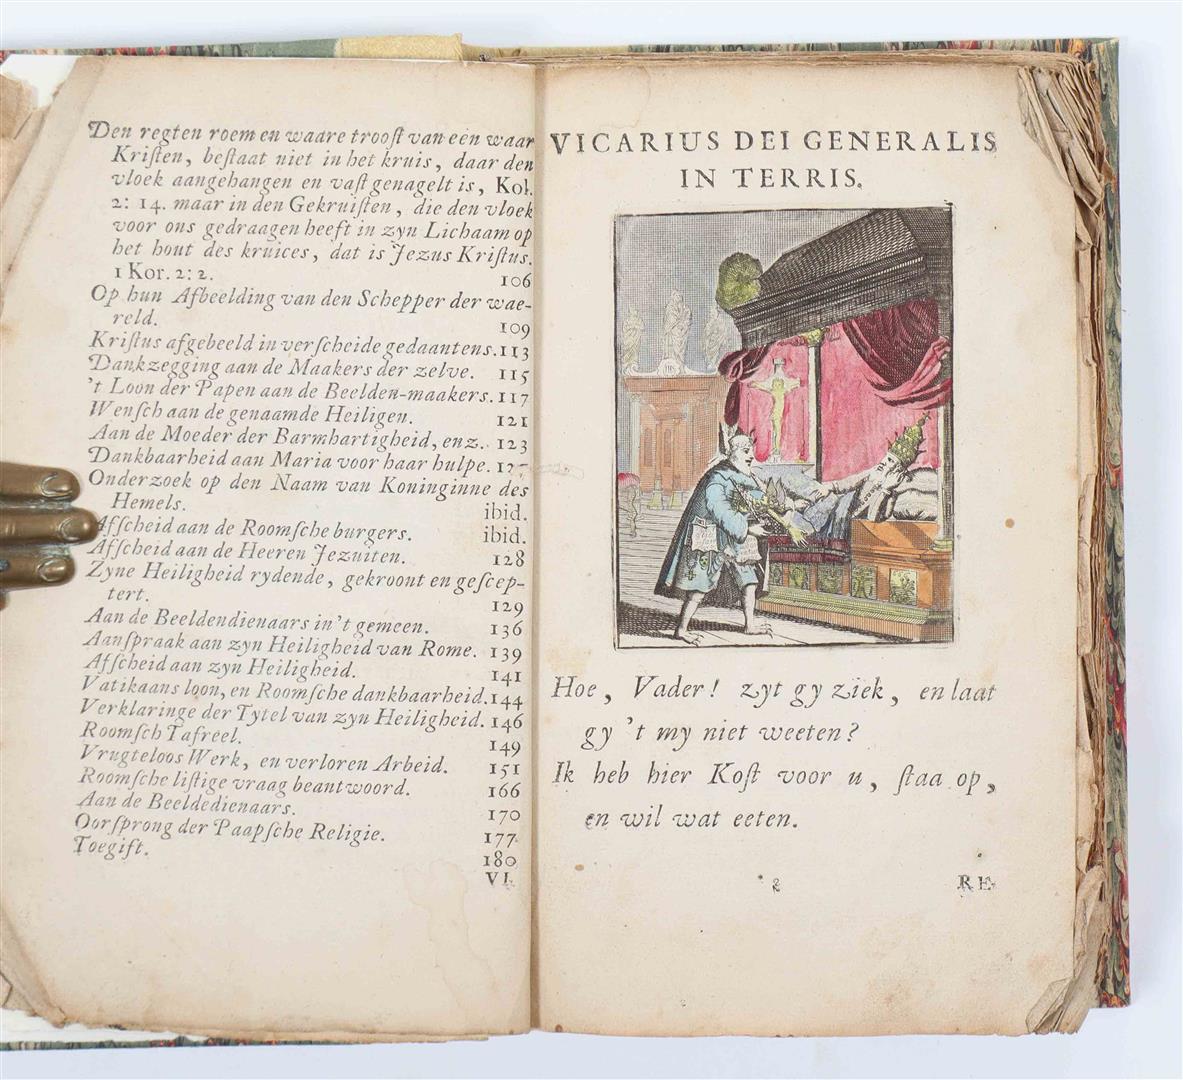 Den regten roem en waare trooſt van een waar
Kriſten, beſtaat niet in het kruis, daar den
vloek aangehangen en vaſt genagelt is, Kol.
2: 14. maar in den Gekruiſten, die den vloek
voor ons gedraagen heeft in zyn Lichaam op
het hout des kruices, dat is Jezus Kriſtus.
1 Kor. 2: 2. 106
Op hun Afbeelding van den Schepper der wae-
reld. 109
Kriſtus afgebeeld in verſcheide gedaantens. 113
Dankzegging aan de Maakers der zelve. 115
't Loon der Papen aan de Beelden-maakers. 117
Wenſch aan de genaamde Heiligen. 121
Aan de Moeder der Barmhartigheid, enz. 123
Dankbaarheid aan Maria voor haar hulpe.
Onderzoek op den Naam van Koninginne des
Hemels. ibid.
Afſcheid aan de Roomſche burgers. ibid.
Afſcheid aan de Heeren Jezuiten. 128
Zyne Heiligheid rydende, gekroont en geſcep-
tert. 129
Aan de Beeldendienaars in't gemeen. 136
Aanſpraak aan zyn Heiligheid van Rome. 139
Afſcheid aan zyn Heiligheid. 141
Vatikaans loon, en Roomſche dankbaarheid. 144
Verklaringe der Tytel van zyn Heiligheid. 146
Roomſch Tafreel. 149
Vrugteloos Werk, en verloren Arbeid. 151
Roomſche liſtige vraag beantwoord. 166
Aan de Beeldedienaars. 170
Oorſprong der Paapſche Religie. 177
Toegift. 180
VI.
VICARIUS DEI GENERALIS
IN TERRIS.
IHS
Hoe, Vader! zyt gy ziek, en laat
gy 't my niet weeten?
Ik heb hier Koſt voor u, ſtaa op,
en wil wat eeten.
RE